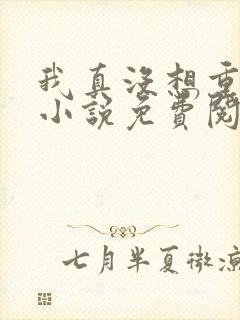 我真没想重
小说免费阅
七月半夏微凉